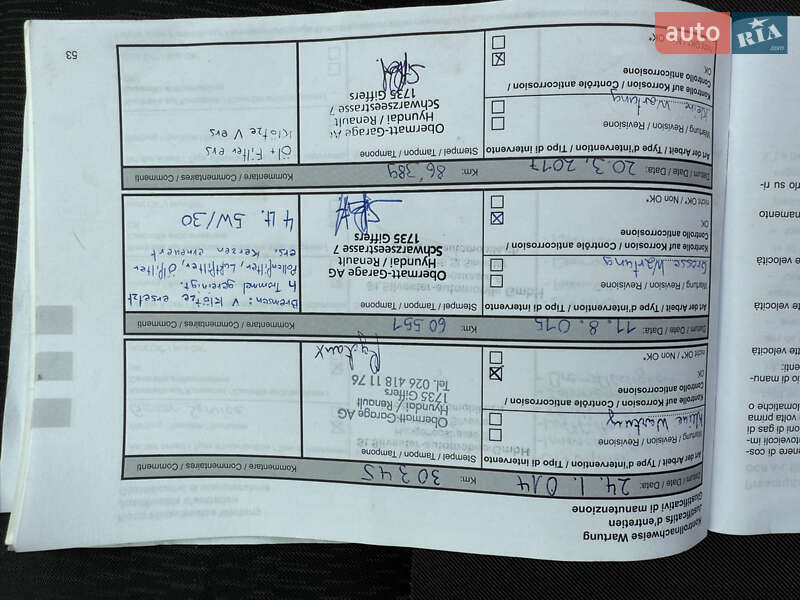 Kontrollnachweise Wartung
Justificatifs d'entretien
Giustificativi di manutenzione
Datum / Date / Data: 24.1.014
Km: 30345
Kommentare / Commentaires / Commenti
Art der Arbeit / Type d'intervention / Tipo di intervento
Wartung / Revisione
Kleine Wartung
Kontrolle auf Korrosion / Contrôle anticorrosion /
Controllo anticorrosione
OK
nicht OK* / Non OK*
Stempel / Tampon / Tampone
Obermatt-Garage AG
Hyundai / Renault
1735 Giffers
Tel. 026 418 11 76
Datum / Date / Data: 11.8.015
Km: 60551
Kommentare / Commentaires / Commenti
Art der Arbeit / Type d'intervention / Tipo di intervento
Wartung / Revisione
Grosse Wartung
Kontrolle auf Korrosion / Contrôle anticorrosion /
Controllo anticorrosione
OK
nicht OK* / Non OK*
Stempel / Tampon / Tampone
Obermatt-Garage AG
Hyundai / Renault
Schwarzseestrasse 7
1735 Giffers
Bremsen: V Klötze ersetzt
h Trommel gereinigt.
Pollenfilter, Luftfilter, Ölfilter
ers. Kerzen erneuert
4 Lt. 5W/30
Datum / Date / Data: 20.3.2017
Km: 86'389
Kommentare / Commentaires / Commenti
Art der Arbeit / Type d'intervention / Tipo di intervento
Wartung / Revision / Revisione
Kleine Wartung
Kontrolle auf Korrosion / Contrôle anticorrosion /
Controllo anticorrosione
OK
nicht OK* / Non OK*
Stempel / Tampon / Tampone
Obermatt-Garage AG
Hyundai / Renault
Schwarzseestrasse 7
1735 Giffers
Öl + Filter ers
Klötze V ers
53
auto RIA
.com